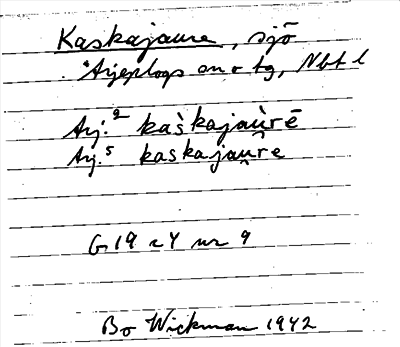 Kaskajaure, sjö
Arjeplogs sn o tg, Nbt l
Arj.² kaškajau̯rē
Arj.⁵ kaskajau̯re
G19 r4 nr 9
Bo Wickman 1942